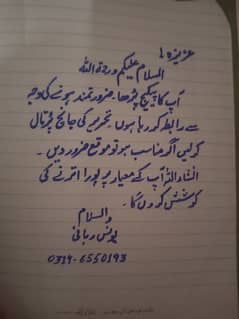 عزیزم!
السلام علیکم ورحمۃ اللہ
آپ کا پیکیج پڑھا۔ ضرورتمند ہونے کی وجہ
سے رابطہ کر رہا ہوں۔ تحریر کی جانچ پڑتال
کر لیں اگر مناسب ہو تو موقع ضرور دیں۔
انشاءاللہ آپ کے معیار پر پورا اترنے کی
کوشش کروں گا۔
والسلام
یونس ربانی
0319-6550193